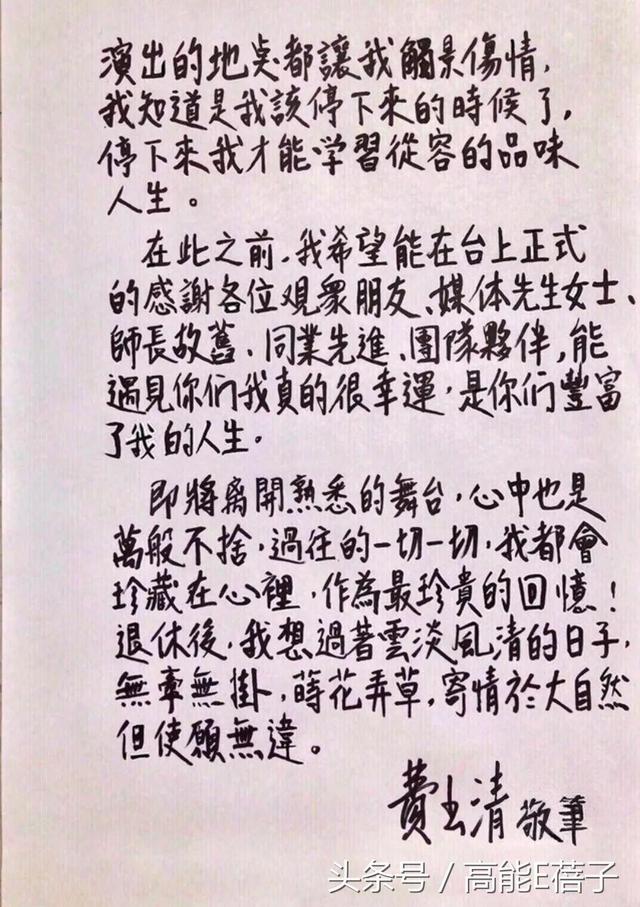 演出的地点都讓我觸景傷情，
我知道是我該停下來的時候了，
停下來我才能学習從容的品味
人生。
在此之前，我希望能在台上正式
的感謝各位观眾朋友、媒体先生女士、
師長故舊、同業先進、團隊夥伴，能
遇見你们我真的很幸運，是你们豐富
了我的人生。
即將离開熟悉的舞台，心中也是
萬般不捨，過往的一切一切，我都會
珍藏在心裡，作為最珍貴的回憶！
退休後，我想過著雲淡風清的日子，
無牽無掛，蒔花弄草，寄情於大自然
但使願無違。
費玉清 敬筆
头条号 / 高能E蓓子